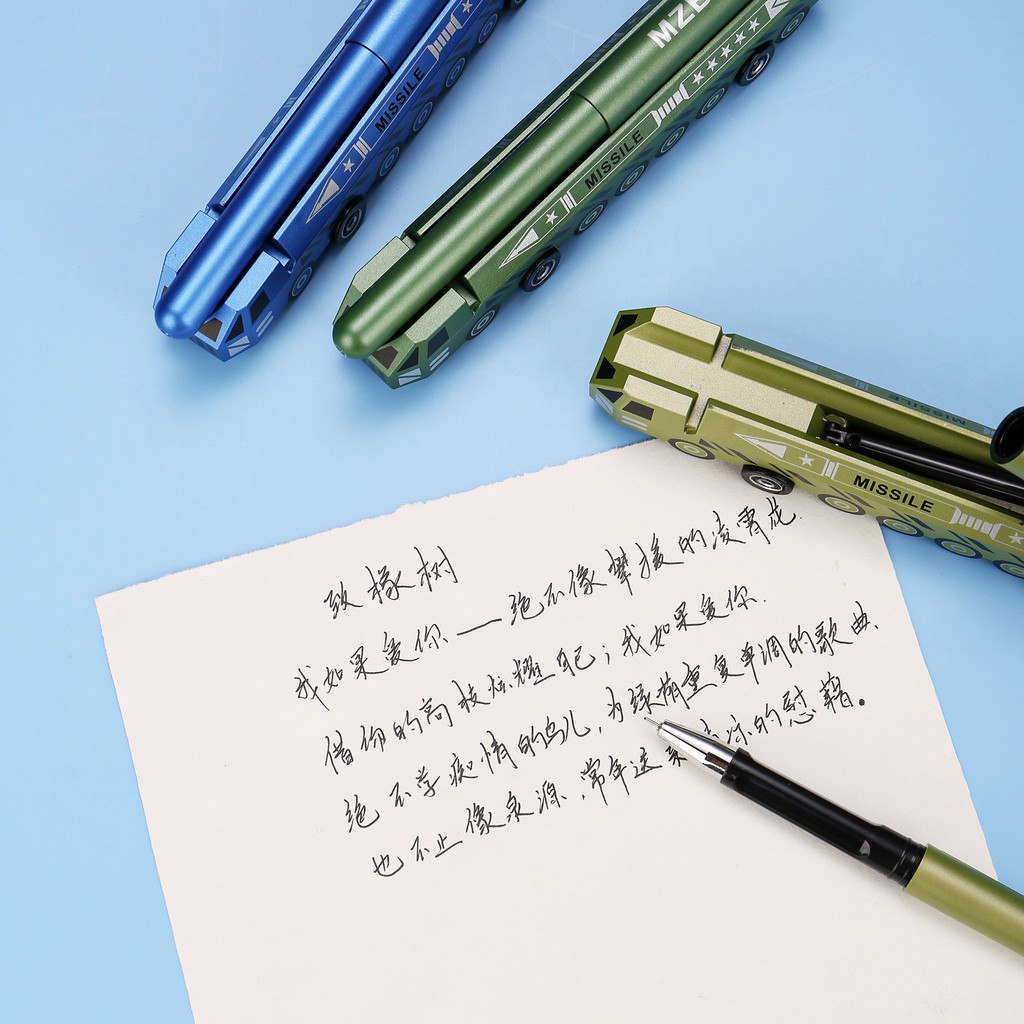 MISSILE
MZB
MISSILE
MISSILE
致橡树
我如果爱你——绝不像攀援的凌霄花
借你的高枝炫耀自己；我如果爱你
绝不学痴情的鸟儿，为绿荫重复单调的歌曲
也不止像泉源，常年送来清凉的慰藉。